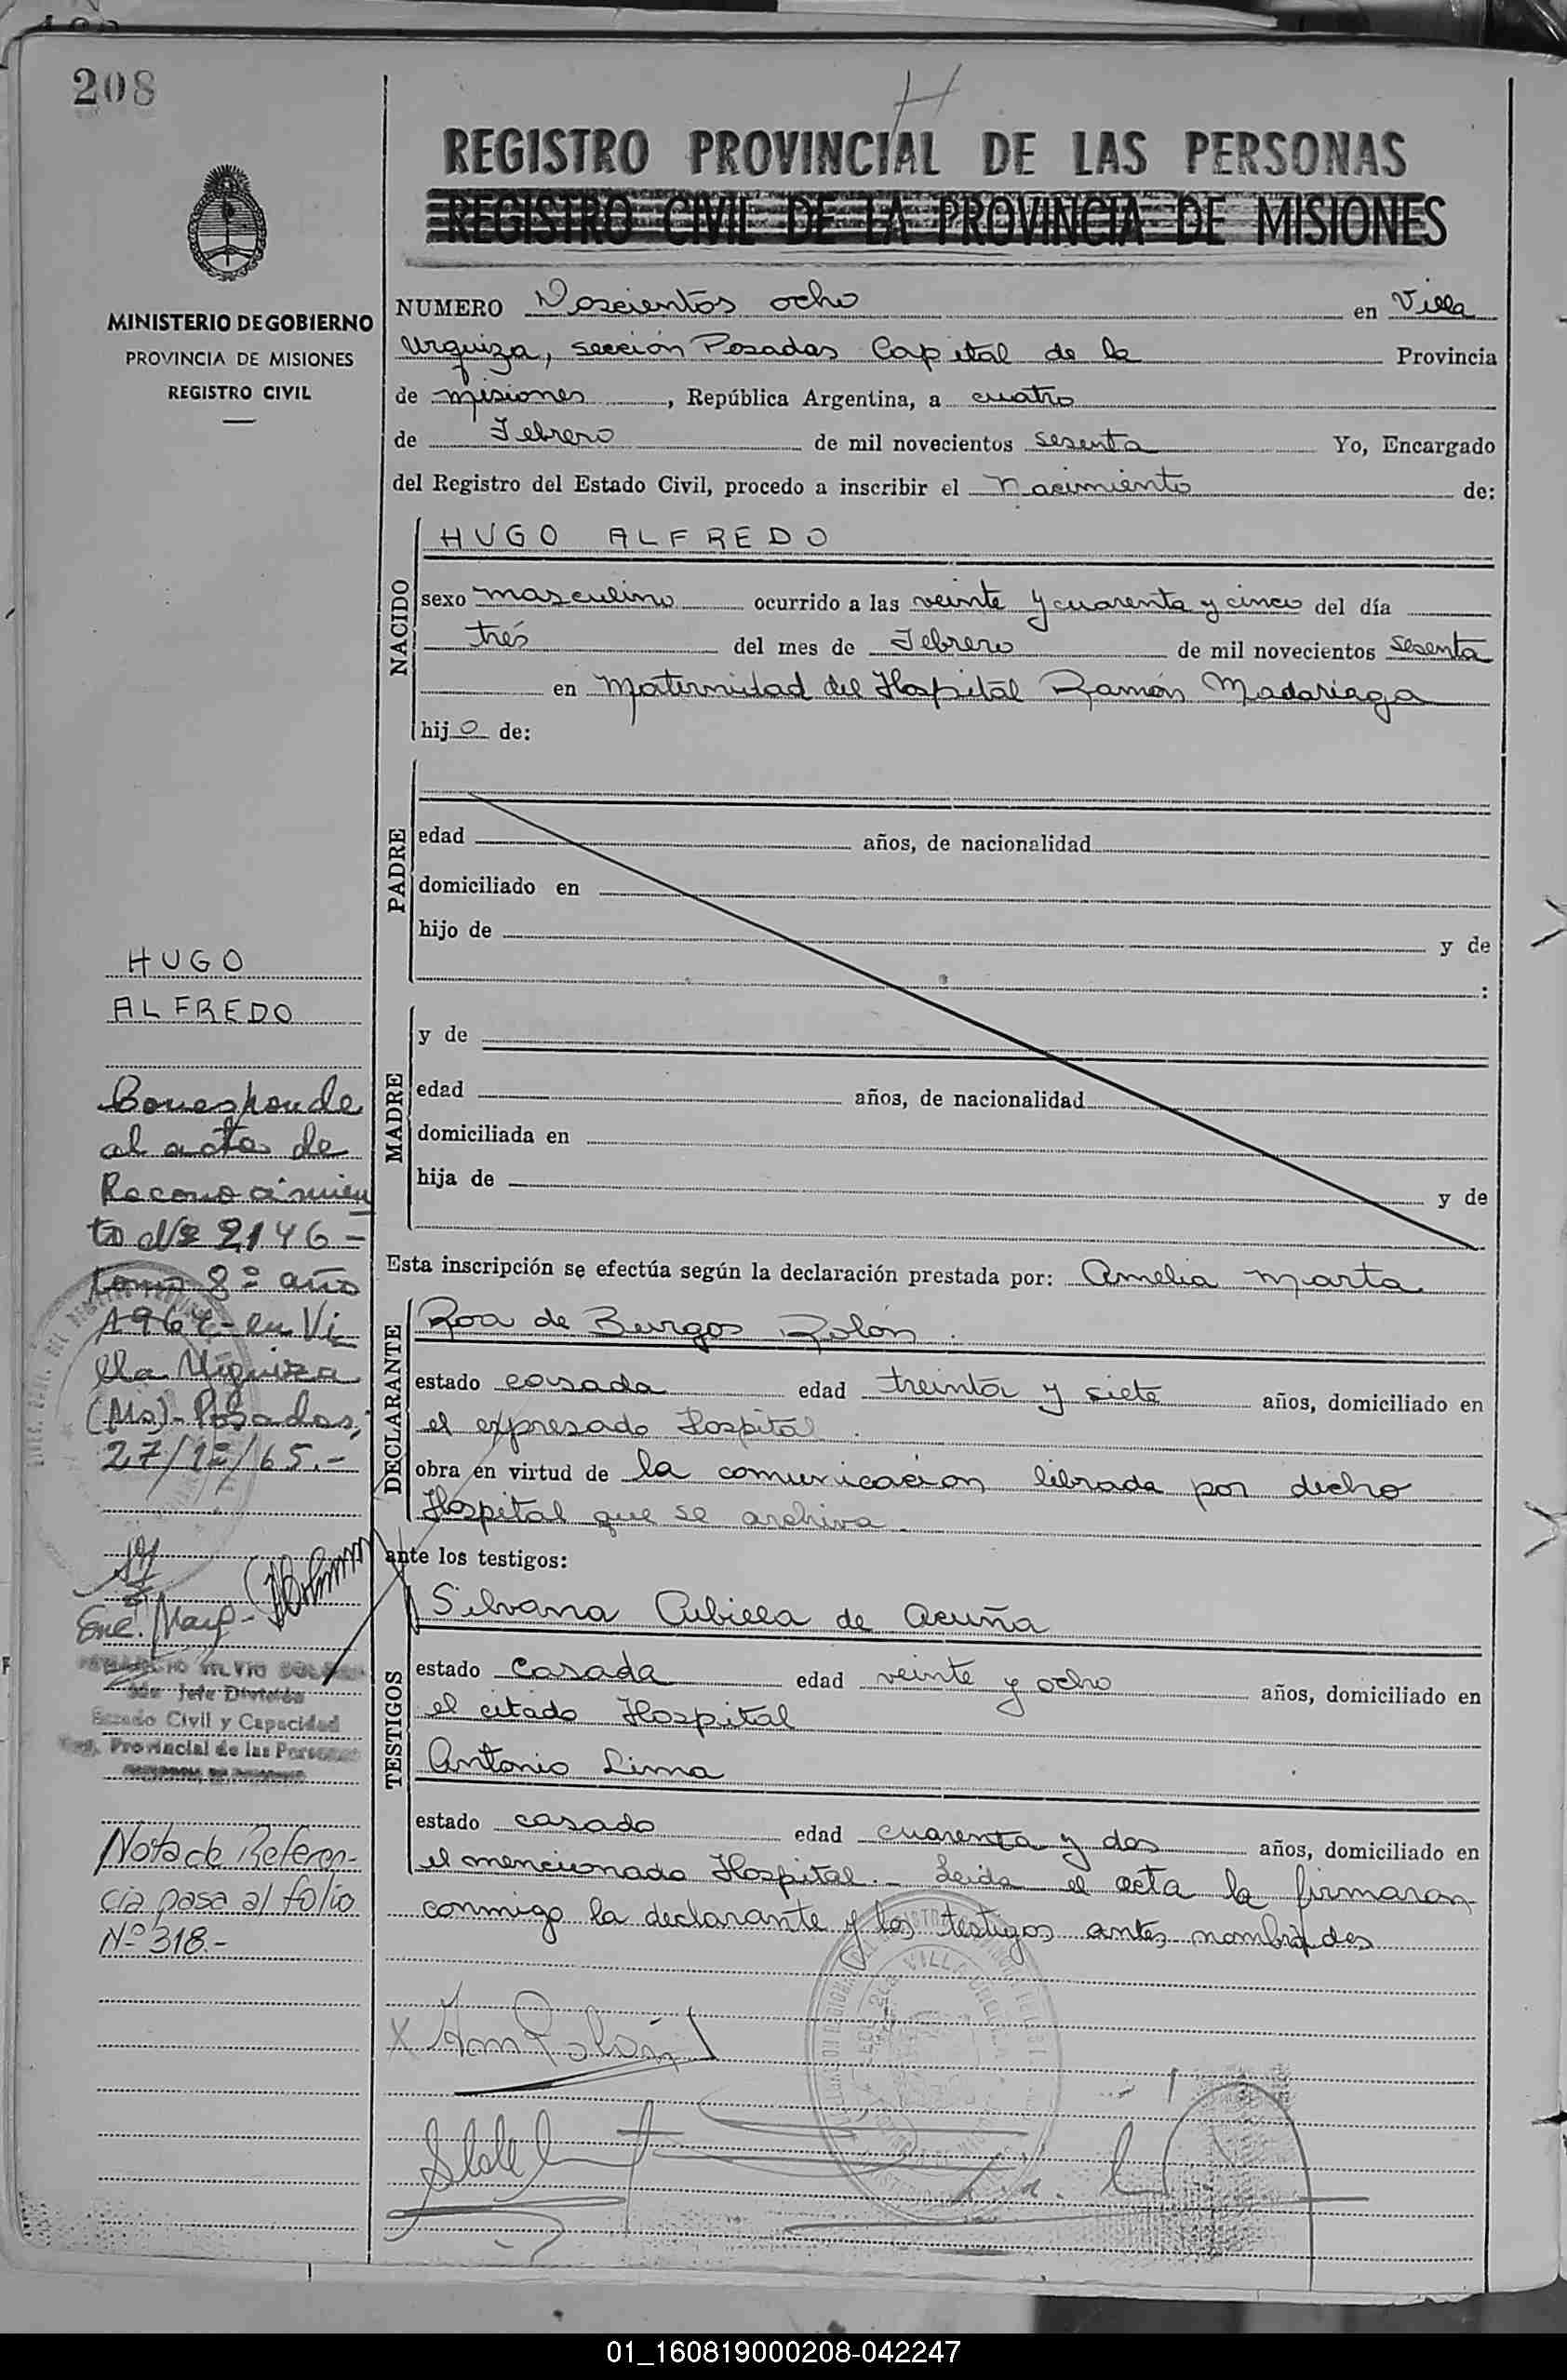 208
REGISTRO PROVINCIAL DE LAS PERSONAS
REGISTRO CIVIL DE LA PROVINCIA DE MISIONES
MINISTERIO DE GOBIERNO
PROVINCIA DE MISIONES
REGISTRO CIVIL
NUMERO Doscientos ocho en Villa
Urquiza, sección Posadas Capital de la Provincia
de misiones, República Argentina, a cuatro
de Febrero de mil novecientos sesenta Yo, Encargado
del Registro del Estado Civil, procedo a inscribir el nacimiento de:
NACIDO
HUGO ALFREDO
sexo masculino ocurrido a las veinte y cuarenta y cinco del día
tres del mes de Febrero de mil novecientos sesenta
en Maternidad del Hospital Ramón Madariaga
hijo de:
PADRE
edad años, de nacionalidad
domiciliado en
hijo de y de
:
MADRE
y de
edad años, de nacionalidad
domiciliada en
hija de y de
Esta inscripción se efectúa según la declaración prestada por: Amelia Marta
DECLARANTE
Roa de Burgos Rolón.
estado casada edad treinta y siete años, domiciliado en
el expresado Hospital.
obra en virtud de la comunicación librada por dicho
Hospital que se archiva.
ante los testigos:
TESTIGOS
Silvana Cubilla de Acuña
estado casada edad veinte y ocho años, domiciliado en
el citado Hospital
Antonio Lima
estado casado edad cuarenta y dos años, domiciliado en
el mencionado Hospital.- Leida el acta la firmaron
conmigo la declarante y los testigos antes nombrados
HUGO
ALFREDO
Corresponde
al acta de
Reconocimien
to Nº 2146-
tomo 8º año
en Vi
lla Urquiza
(Ms)- Posadas,
27/12/65.-
Jefe División
Estado Civil y Capacidad
Reg. Provincial de las Personas
Nota de Referen-
cia pasa al folio
Nº 318.-
01_160819000208-042247